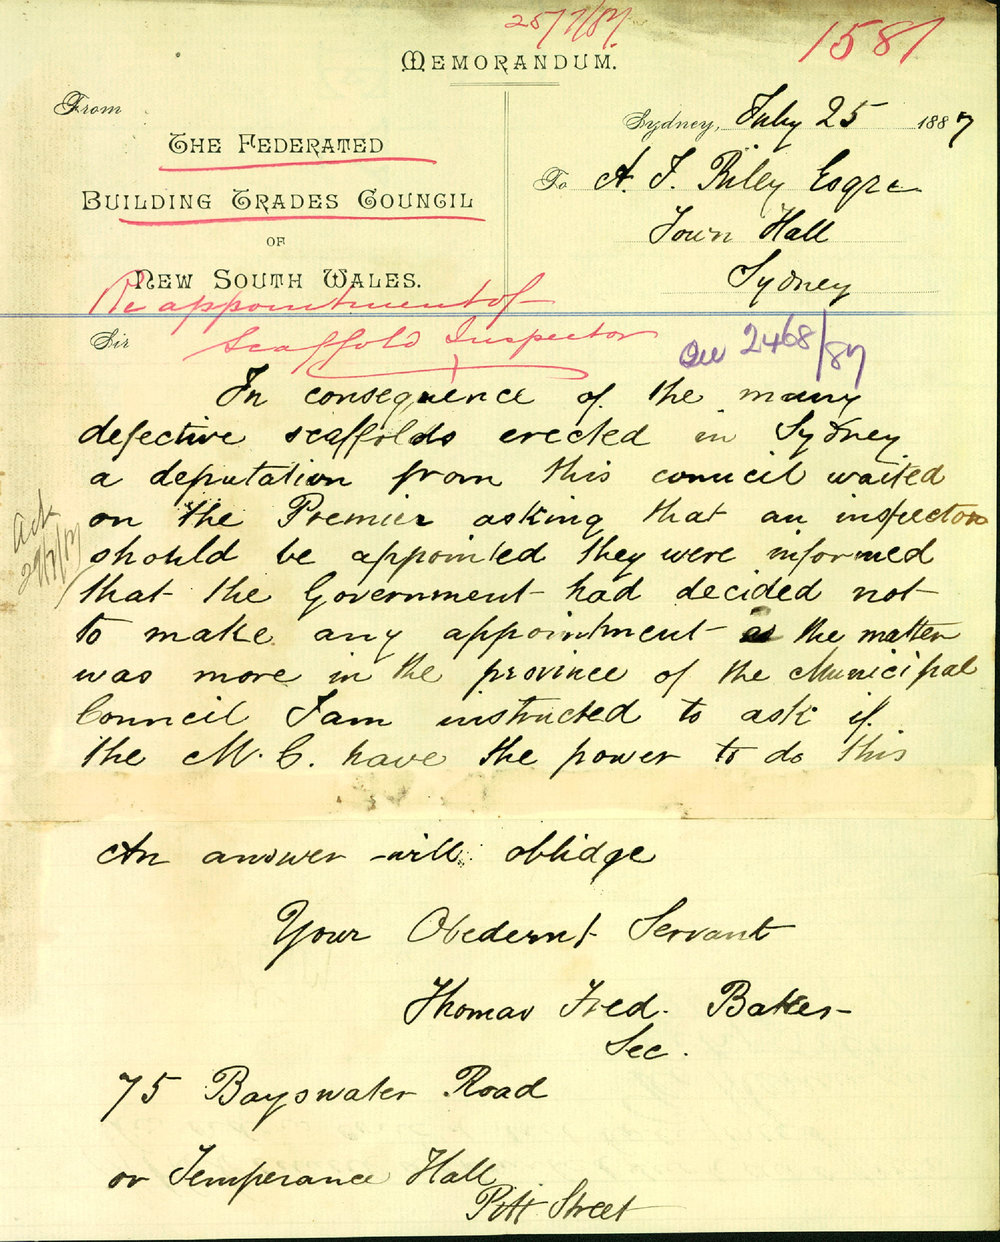 25/7/87.
1587
MEMORANDUM.
From
THE FEDERATED
BUILDING TRADES COUNCIL
OF
NEW SOUTH WALES.
Sydney, July 25 1887
To A. F. Riley Esqre
Town Hall
Sydney
Re appointment of
Scaffold Inspector
2468/87
Sir
In consequence of the many
defective scaffolds erected in Sydney
a deputation from this council waited
on the Premier asking that an inspector
should be appointed they were informed
that the Government had decided not
to make any appointment as the matter
was more in the province of the Municipal
Council I am instructed to ask if
the M. C. have the power to do this
Ack
29/7/87
An answer will oblidge
Your Obedernt Servant
Thomas Fred. Baker
Sec.
75 Bayswater Road
or Temperance Hall
Pitt Street